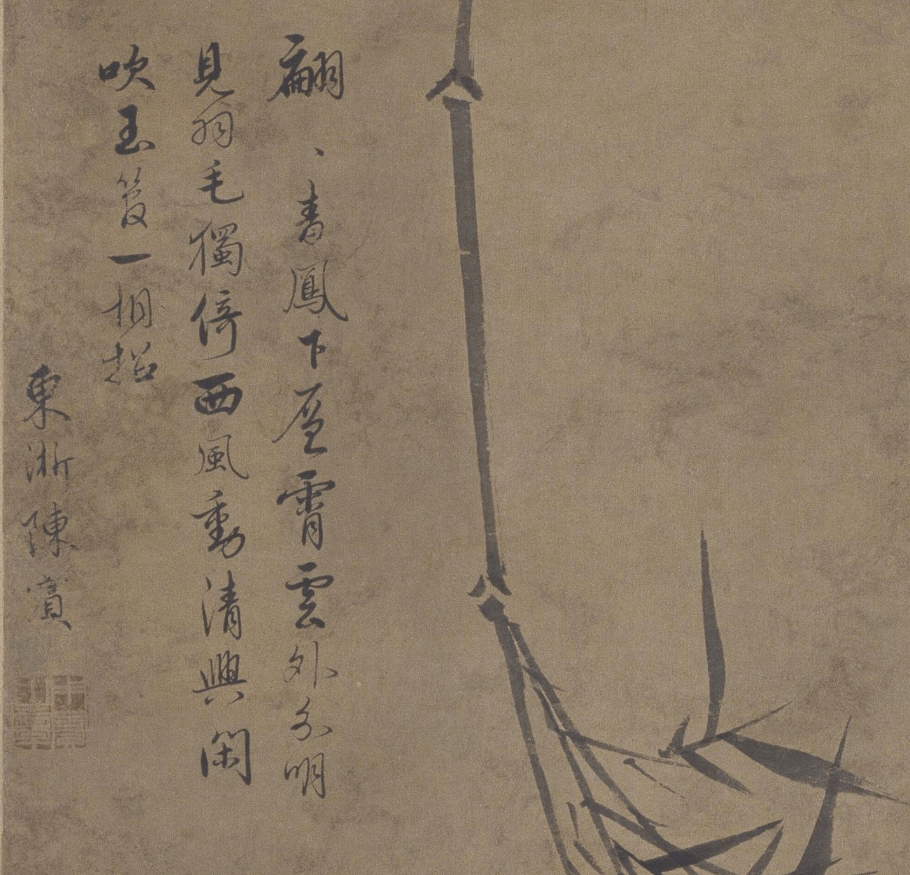 翩、青鳳下層霄雲外分明
見羽毛獨倚西風動清興閑
吹玉一相招
東浙陳